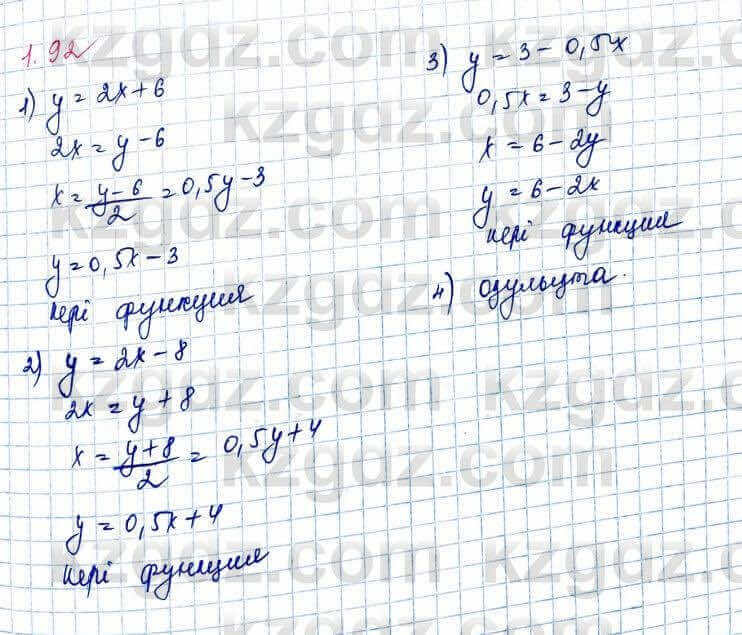 1.92
1) y = 2x + 6
2x = y - 6
x = (y - 6)/2 = 0,5y - 3
y = 0,5x - 3
кері функция
2) y = 2x - 8
2x = y + 8
x = (y + 8)/2 = 0,5y + 4
y = 0,5x + 4
кері функция
3) y = 3 - 0,5x
0,5x = 3 - y
x = 6 - 2y
y = 6 - 2x
кері функция
4)
kzgdz.com